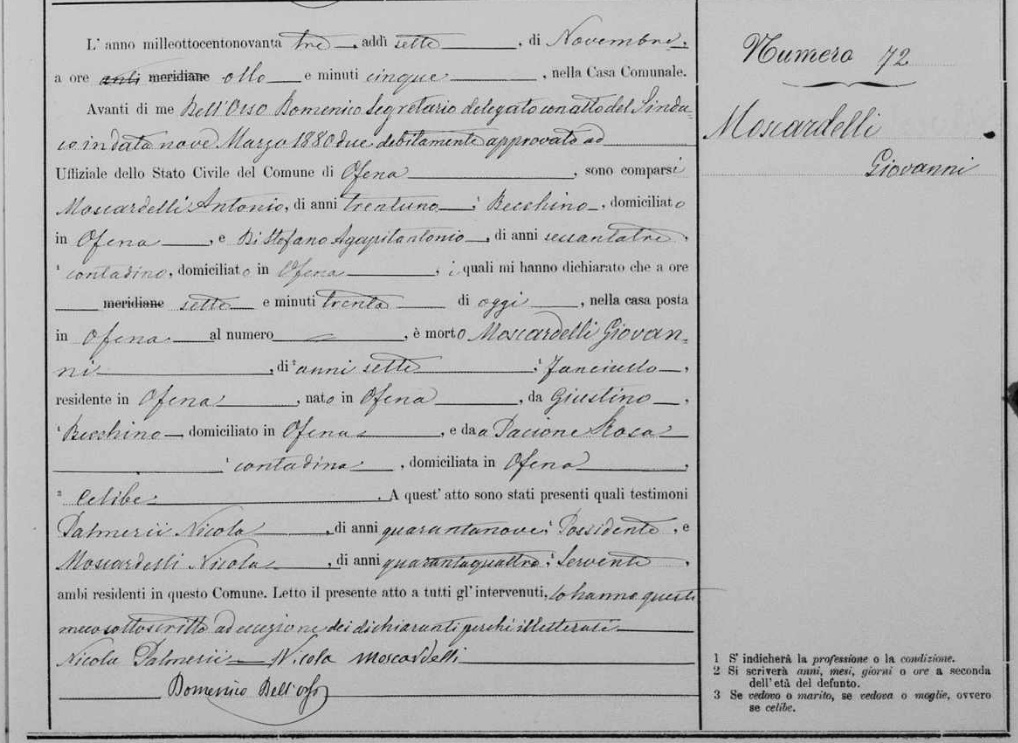 L' anno milleottocentonovanta tre, addì sette, di Novembre,
a ore anti meridiane otto e minuti cinque, nella Casa Comunale.
Avanti di me Dell'Orso Domenico Segretario delegato con atto del Sinda=
co in data nove Marzo 1880due debitamente approvato ad
Uffiziale dello Stato Civile del Comune di Ofena, sono comparsi
Moscardelli Antonio, di anni trentuno, ¹ Becchino, domiciliato
in Ofena, e Di Stefano Agapitantonio, di anni sessantatre,
¹ contadino, domiciliato in Ofena, i quali mi hanno dichiarato che a ore
meridiane sette e minuti trenta di oggi, nella casa posta
in Ofena al numero, è morto Moscardelli Giovan=
ni, di ² anni sette, ¹ fanciullo,
residente in Ofena, nato in Ofena, da Giustino,
¹ Becchino domiciliato in Ofena, e da a Pacione Rosa
¹ contadina, domiciliata in Ofena,
³ Celibe. A quest' atto sono stati presenti quali testimoni
Palmerii Nicola, di anni quarantanove, ¹ Possidente, e
Moscardelli Nicola, di anni quarantaquattro, ¹ Servente,
ambi residenti in questo Comune. Letto il presente atto a tutti gl' intervenuti, lo hanno questi
meco sottoscritto ad eccezione dei dichiaranti perchè illetterati
Nicola Palmerii Nicola Moscardelli
Domenico Dell'Orso
Numero 72
Moscardelli
Giovanni
1 S' indicherà la professione o la condizione.
2 Si scriverà anni, mesi, giorni o ore a seconda
dell'età del defunto.
3 Se vedovo o marito, se vedova o moglie, ovvero
se celibe.